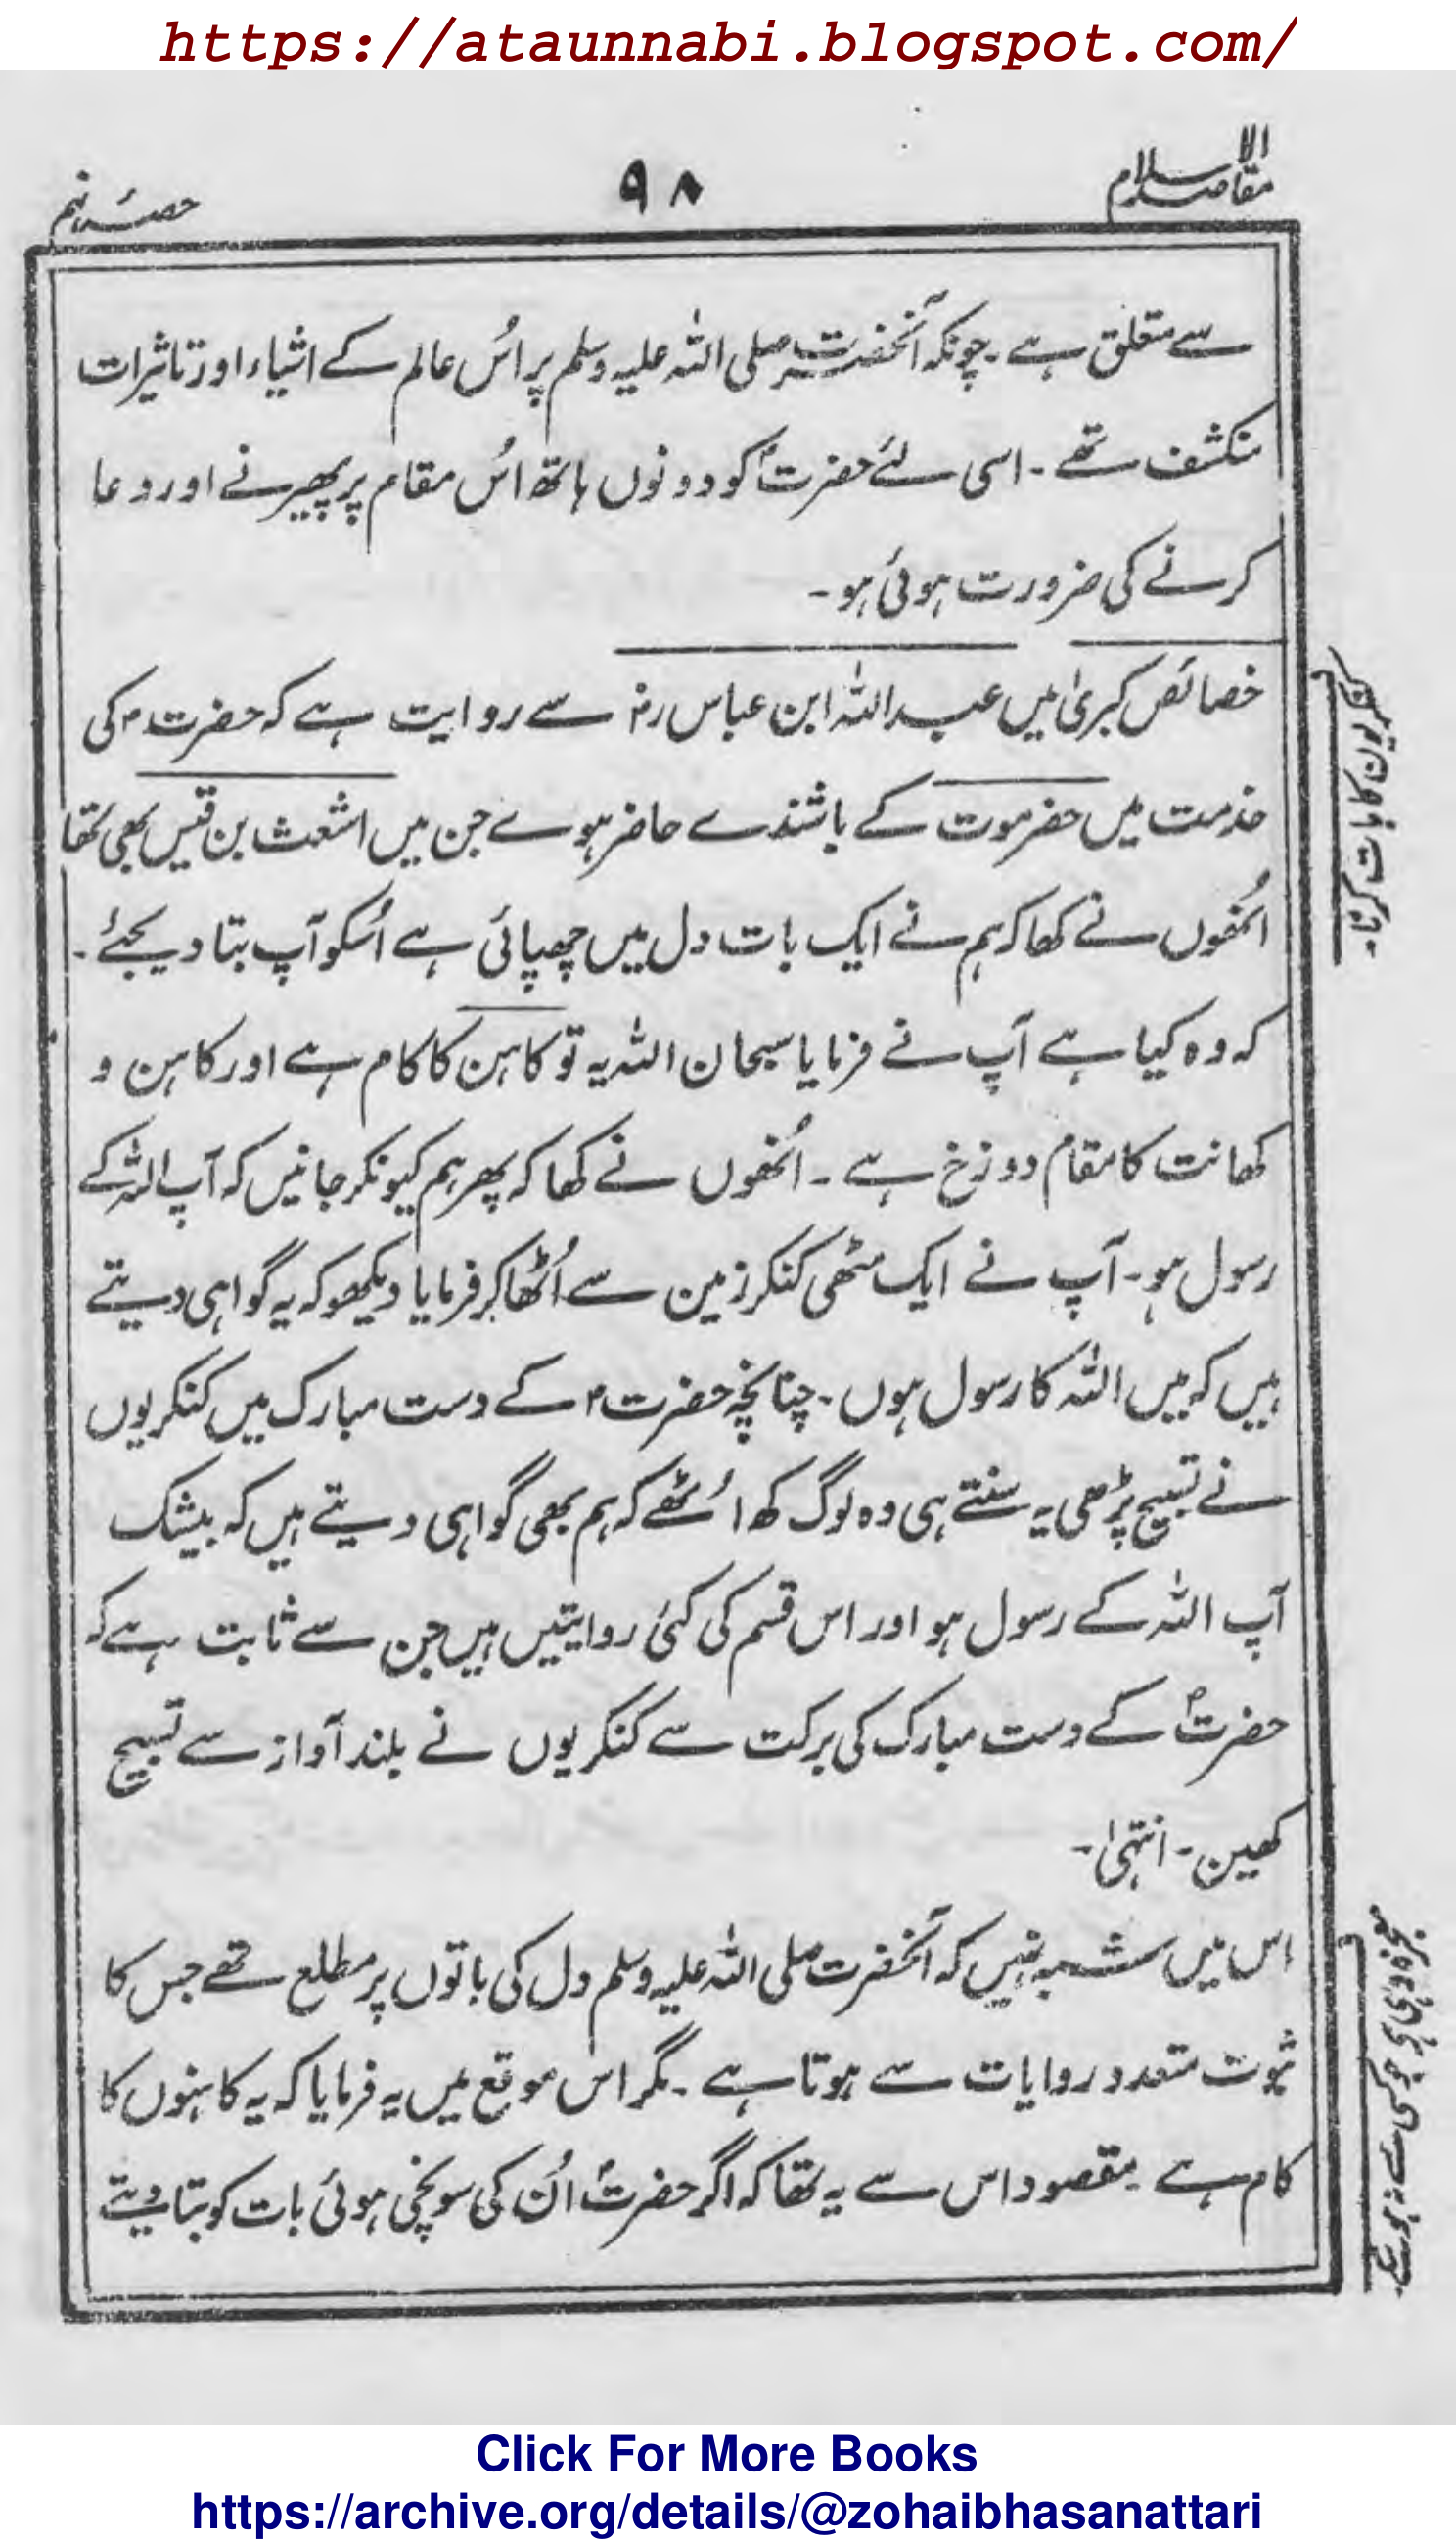 https://ataunnabi.blogspot.com/
مقاصد الاسلام
۹۸
حصۂ نہم
سے متعلق ہے ۔ چونکہ آنحضرت صلی اللہ علیہ وسلم پر اُس عالم کے اشیاء اور تاثیرات
منکشف تھے ۔ اسی لئے حضرتؐ کو دونوں ہاتھ اُس مقام پر پھیرنے اور دعا
کرنے کی ضرورت ہوئی ہو ۔
خصائص کبریٰ میں عبداللہ ابن عباس رض سے روایت ہے کہ حضرت ؐ کی
خدمت میں حضرموت کے باشندے حاضر ہوے جن میں اشعث بن قیس بھی تھا
اُنھوں نے کھا کہ ہم نے ایک بات دل میں چھپائی ہے اُسکو آپ بتا دیجئے ۔
کہ وہ کیا ہے آپ نے فرمایا سبحان اللہ یہ تو کاہن کا کام ہے اور کاہن و
کھانت کا مقام دوزخ ہے ۔ اُنھوں نے کھا کہ پھر ہم کیونکر جانیں کہ آپ اللہ کے
رسول ہو ۔ آپ نے ایک مٹھی کنکر زمین سے اُٹھا کر فرمایا دیکھو کہ یہ گواہی دیتے
ہیں کہ میں اللہ کا رسول ہوں ۔ چنانچہ حضرت ؐ کے دست مبارک میں کنکریوں
نے تسبیح پڑھی یہ سنتے ہی وہ لوگ کھ اُٹھے کہ ہم بھی گواہی دیتے ہیں کہ بیشک
آپ اللہ کے رسول ہو اور اس قسم کی کئی روایتیں ہیں جن سے ثابت ہے کہ
حضرتؐ کے دست مبارک کی برکت سے کنکریوں نے بلند آواز سے تسبیح
کھین ۔ انتہیٰ ۔
اس میں شبہ نہیں کہ آنحضرت صلی اللہ علیہ وسلم دل کی باتوں پر مطلع تھے جس کا
ثبوت متعدد روایات سے ہوتا ہے ۔ مگر اس موقع میں یہ فرمایا کہ یہ کاہنوں کا
کام ہے ۔ مقصود اس سے یہ تھا کہ اگر حضرتؐ اُن کی سونچی ہوئی بات کو بتا دیتے
Click For More Books
https://archive.org/details/@zohaibhasanattari